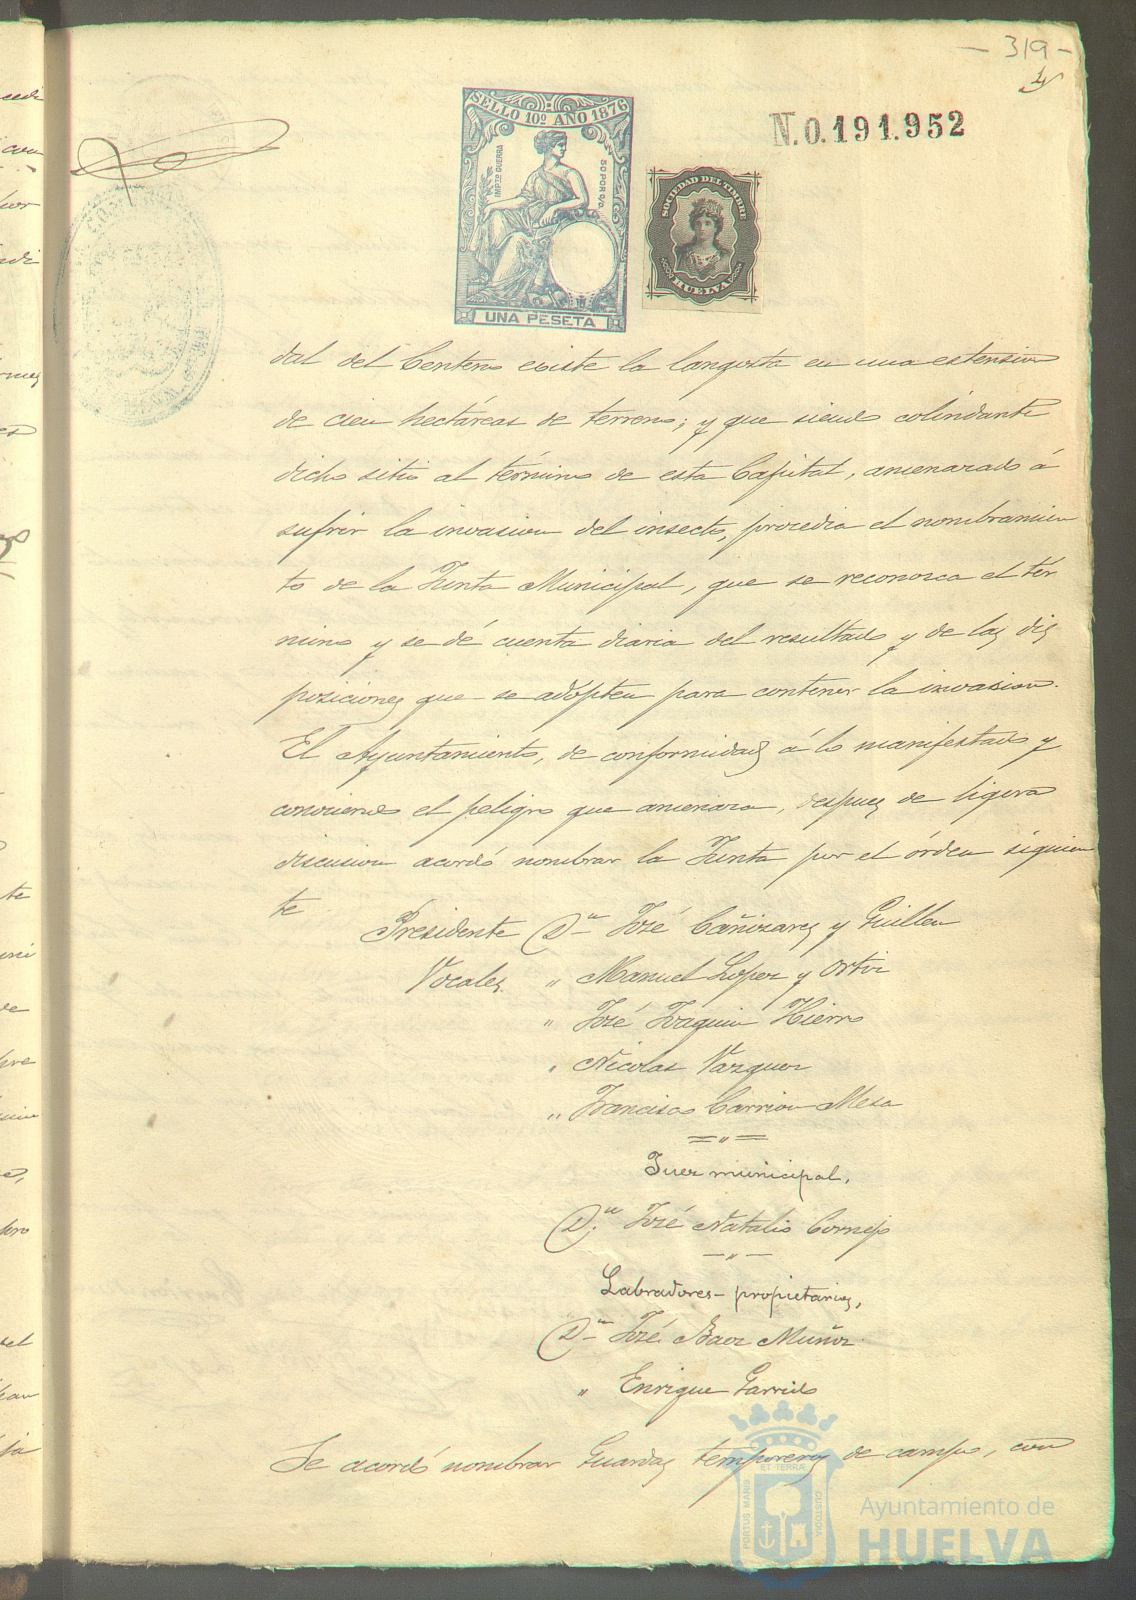 - 319 -
SELLO 10º AÑO 1876
IMPTO GUERRA
50 POR C/O
UNA PESETA
N.0.191.952
SOCIEDAD DEL TIMBRE
HUELVA
dal del Centeno existe la langosta en una estension
de cien hectáreas de terreno; y que siendo colindante
dicho sitio al término de esta Capital, amenazado á
sufrir la invasion del insecto, procedia el nombramien
to de la Junta Municipal, que se reconozca el tér
mino y se dé cuenta diaria del resultado y de las dis
posiciones que se adopten para contener la invasion.
El Ayuntamiento, de conformidad á lo manifestado y
conociendo el peligro que amenaza, despues de ligera
discusion acordó nombrar la Junta por el órden siguien
te
Presidente Dn José Cañizares y Guillen
Vocales " Manuel Lopez y Ortiz
" José Joaquin Hierro
" Nicolas Vazquez
" Francisco Carrion Mesa
Juez municipal,
Dn José Natalio Cornejo
Labradores-propietarios,
Dn José Baez Muñoz
" Enrique Garrido
Se acordó nombrar Guardas temporeros de campo, con
PORTUS MARIS
ET TERRÆ
CUSTODIA
Ayuntamiento de
HUELVA